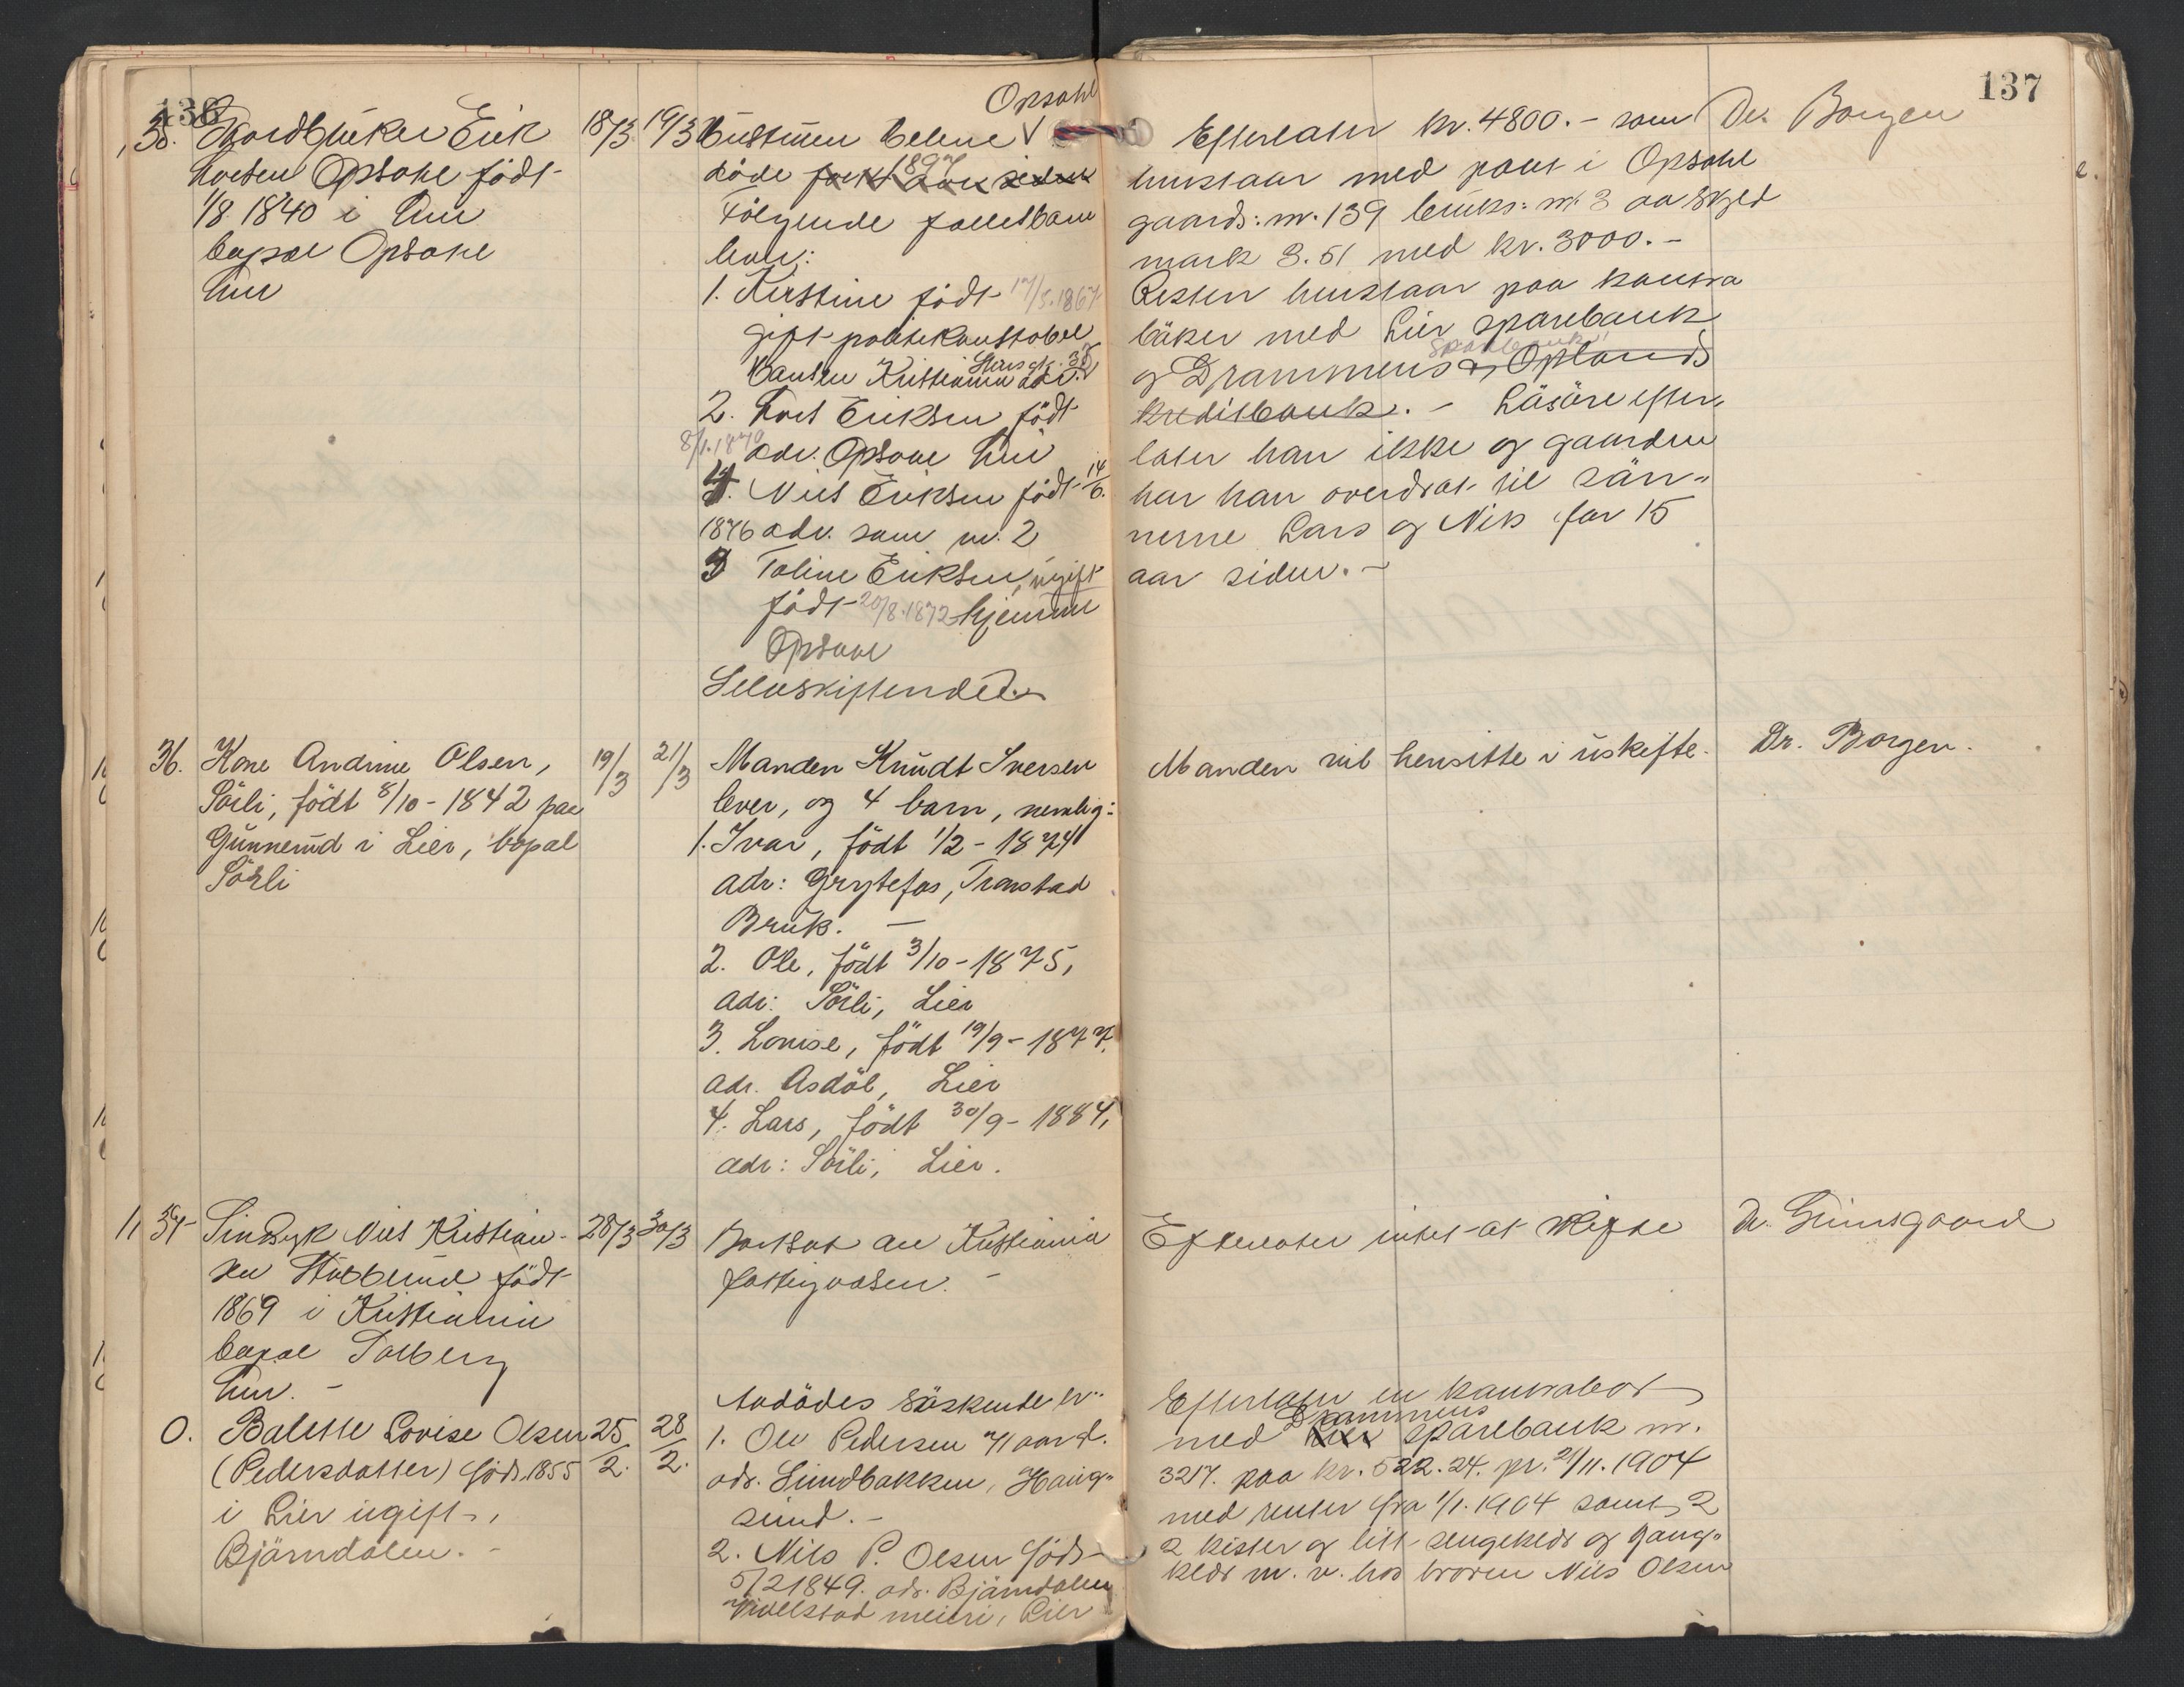 136
35. Gaardbruker Erik
Larsen Opsahl födt
1/8 1840 i Lier
bopæl Opsahl
Lier
18/3 19/3
Opsahl
Hustruen Helene
döde for 1 aar siden 1897
Fölgende fællesbarn
lever:
1. Kirstine födt 17/5.1867
gift politikonstabel
Hansen Kristiania adr.
2. Lars Eriksen födt
8/1.1870 adr. Opsahl Lier
4. Nils Eriksen födt 14/6.
1876 adr. som nr. 2
3 Toline Eriksen, ugift
födt 20/8.1872 hjemme
Opsahl
Selvskiftende.
36. Kone Andrine Olsen,
Sörli, födt 8/10 - 1842 paa
Gunnerud i Lier, bopæl
Sörli
19/3 21/3
Manden Knudt Iversen
lever, og 4 barn, nemlig:
1. Ivar, födt 1/2 - 1874
adr: Grytefos, Tronstad
Bruk. -
2. Ole, födt 3/10 - 1875,
adr: Sörli, Lier
3. Lovise, födt 19/9 - 1877.
adr. Asdöl, Lier
4. Lars, födt 30/9 - 1884,
adr: Sörli, Lier.
37 Nils Kristian-
sen Stubberud födt
1869 i Kristiania
bopæl
Lier. -
28/3 30/3
Bortsat av Kristiania
fattigvæsen. -
0. Balette Lovise Olsen
(Pedersdatter) föd. 1855
i Lier ugift,
Bjärndalen. -
25/2. 28/2.
Avdödes söskende er
1. Ole Pedersen 71 aar
adr. Lundbakken, Haug-
sund. -
2. Nils P. Olsen föds
5/2 1849. adr. Bjärndalen
meieri, Lier
137
Efterlater kr. 4800. - som
henstaar med pant i Opsahl
gaards: nr. 139 bruks: nr. 3 av skyld
mark 3.51 med kr. 3000. -
Resten henstaar paa kontra
böker med Lier sparebank
og Drammens sparebank & Oplands
kreditbank. - Lösöre efter-
later han ikke og gaarden
har han overdrat til sön-
nerne Lars og Nils for 15
aar siden. -
Dr. Borgen
Manden vil hensitte i uskifte.
Dr. Borgen.
Efterlater intet at skifte
Dr. Grimsgaard
Efterlater en kontrabok
med Lier Drammens sparebank nr.
3217. paa kr. 522.24. pr. 21/11.1904
med renter fra 1/1.1904 samt 2
2 kister og litt sengeklær og gang-
klær m. v. hos broren Nils Olsen